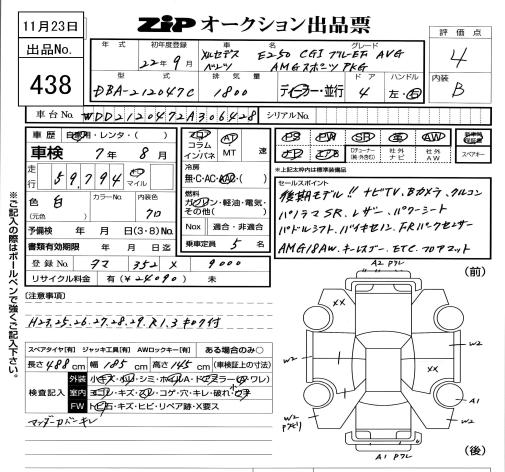 11月23日
ZIP オークション出品票
評価点
4
内装
B
出品No.
438
年式
初年度登録
22年9月
車名
メルセデスベンツ
グレード
E250 CGI ブルーEFI AVG
AMGスポーツPKG
型式
DBA-212047C
排気量
1800
ディーラー・並行
ドア
4
ハンドル
左・右
車台No.
WDD2120472A306428
シリアルNo.
車歴 自家用・レンタ・( )
車検 7年8月
走行 59,794 km マイル
色 白
(元色)
カラーNo.
内装色
クロ
予備検 年 月 日(3・8)No.
書類有効期限 年 月 日
登録No. タマ 352 × 9000
リサイクル料金 有(¥24090) 未
コラム
インパネ
AT
MT
速
冷房
無・C・AC・AAC・( )
燃料
ガソリン・軽油・電気・
その他( )
Nox 適合・非適合
乗車定員 5 名
PS PW SR 革 AW
Dチューナー
社外ナビ
社外AW
スペアキー
※上記太枠内は標準装備品
セールスポイント
後期モデル!! ナビTV、Bカメラ、クルコン
パノラマSR、レザー、パワーシート
パドルシフト、バイキセノン、F.Rパークセンサー
AMG18AW、キーレスゴー、ETC、フロアマット
注意事項
H23.25.26.27.28.29.R1.3 キロク付
スペアタイヤ[有] ジャッキ工具[有] AWロックキー[有] ある場合のみ○
長さ488cm 幅185cm 高さ145cm (車検証上の寸法)
検査記入
外装
室内
FW
※ご記入の際はボールペンで強くご記入下さい。
(前)
(後)
A2
XX
W2
W2
XX
W2
W2
A1
A1